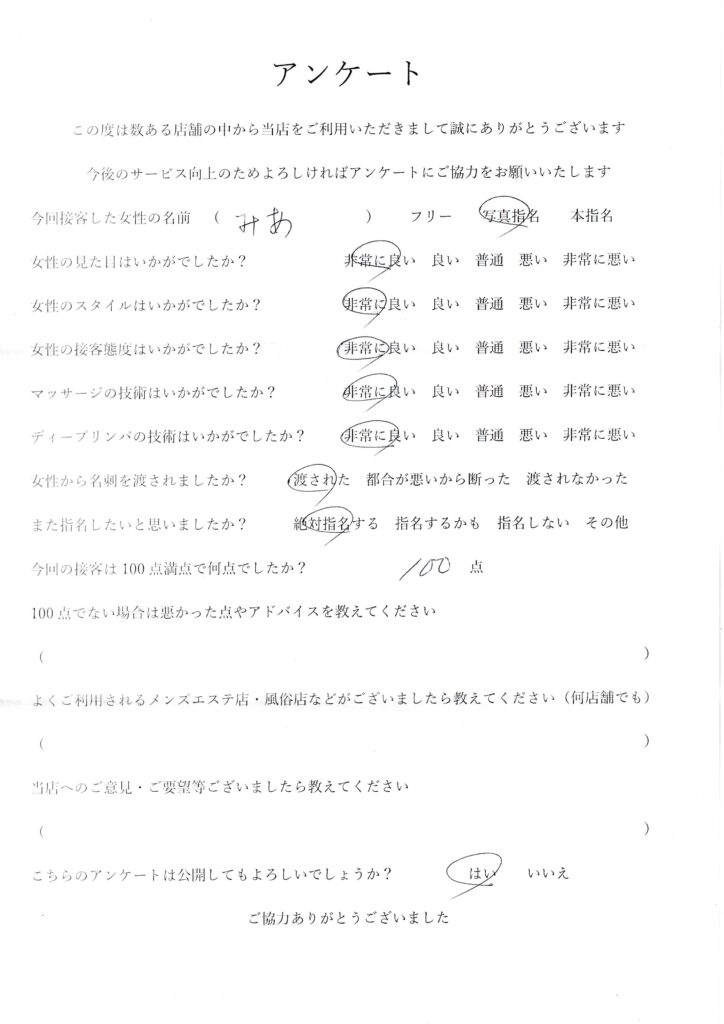 アンケート
この度は数ある店舗の中から当店をご利用いただきまして誠にありがとうございます
今後のサービス向上のためよろしければアンケートにご協力をお願いいたします
今回接客した女性の名前 （ みあ ） フリー 写真指名 本指名
女性の見た目はいかがでしたか？ 非常に良い 良い 普通 悪い 非常に悪い
女性のスタイルはいかがでしたか？ 非常に良い 良い 普通 悪い 非常に悪い
女性の接客態度はいかがでしたか？ 非常に良い 良い 普通 悪い 非常に悪い
マッサージの技術はいかがでしたか？ 非常に良い 良い 普通 悪い 非常に悪い
ディープリンパの技術はいかがでしたか？ 非常に良い 良い 普通 悪い 非常に悪い
女性から名刺を渡されましたか？ 渡された 都合が悪いから断った 渡されなかった
また指名したいと思いましたか？ 絶対指名する 指名するかも 指名しない その他
今回の接客は 100 点満点で何点でしたか？ 100 点
100 点でない場合は悪かった点やアドバイスを教えてください
（ ）
よくご利用されるメンズエステ店・風俗店などがございましたら教えてください（何店舗でも）
（ ）
当店へのご意見・ご要望等ございましたら教えてください
（ ）
こちらのアンケートは公開してもよろしいでしょうか？ はい いいえ
ご協力ありがとうございました